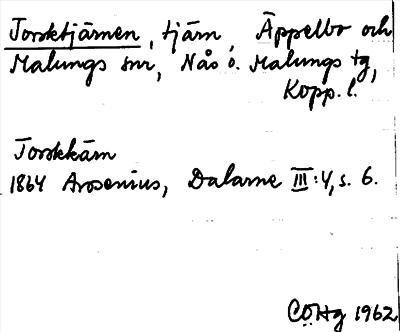 Torsktjärnen, tjärn, Äppelbo och
Malungs snr, Nås o. Malungs tg,
Kopp. l.
Torskkärn
1864 Arosenius, Dalarne III:4, s. 6.
CÖHg 1962